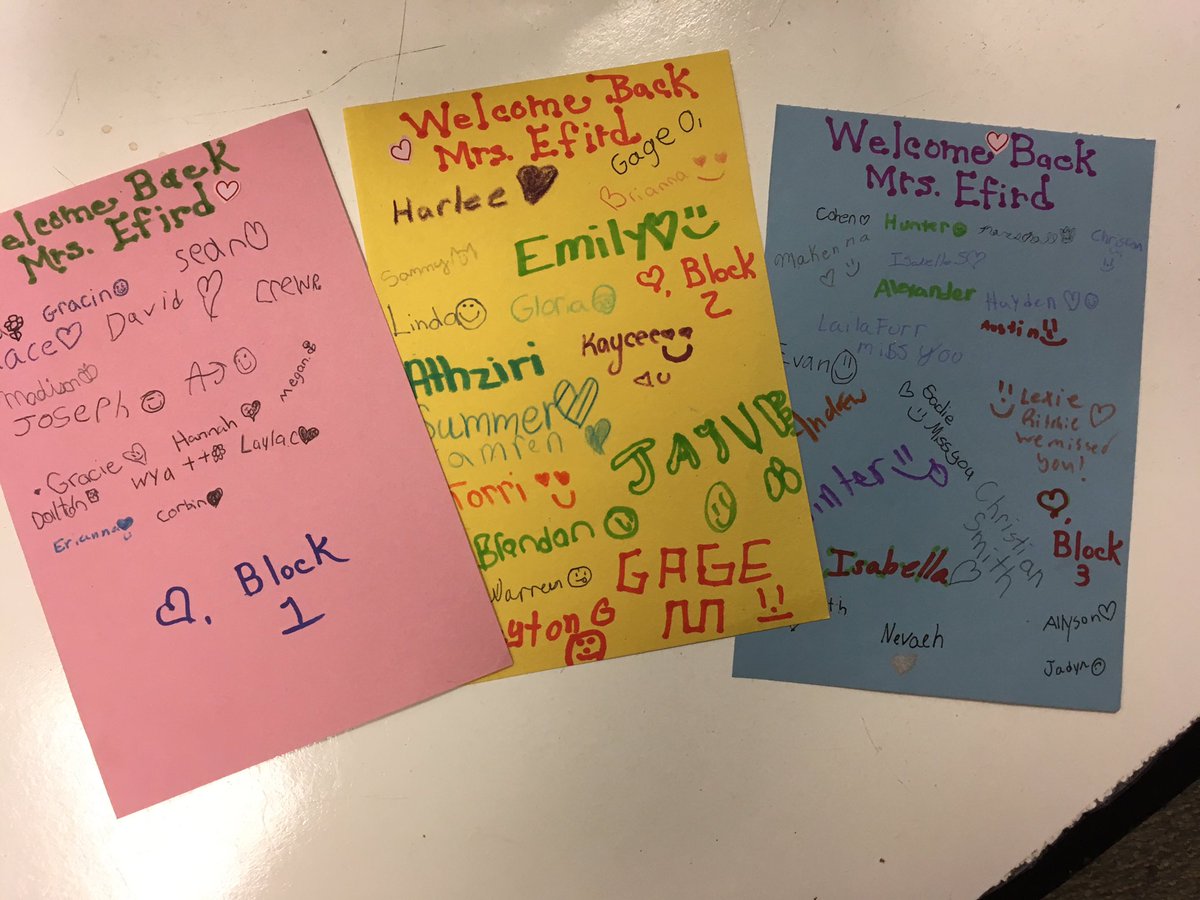 elcome Back
Mrs. Efird
sean
Gracin
David
Crewe
Madison
Joseph
AJ
Megan.
Hannah
Gracie
Wyatt
Laylac
Dalton
Corbin
Erianna
, Block
1
Welcome Back
Mrs. Efird
Gage O.
Harlee
Brianna
Emily
Sammy
, Block
2
Linda
Gloria
Kaycee
Athziri
Summer
JAYVE
Torri
Brendan
Warren
GAGE
M
yton G
Welcome Back
Mrs. Efird
Cohen
Hunter
Makenna
Isabella S
Alexander
Hayden
Austin
Laila Furr
miss you
Evan
Sadie
Miss you
Lexie
Ritchie
we missed
you!
Andrew
nter
Christian
Smith
, Block
3
Isabella
th
Nevaeh
Allyson
Jadyn